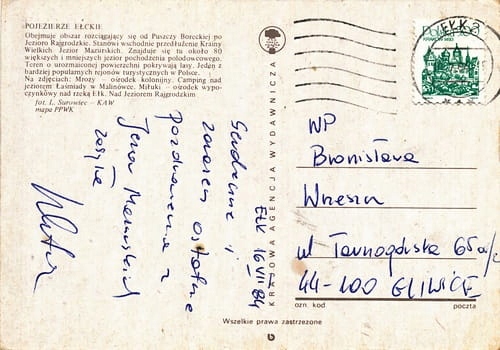 POJEZIERZE EŁCKIE
Obejmuje obszar rozciągający się od Puszczy Boreckiej po
Jezioro Rajgrodzkie. Stanowi wschodnie przedłużenie Krainy
Wielkich Jezior Mazurskich. Znajduje się tu około 80
większych i mniejszych jezior pochodzenia polodowcowego.
Teren o urozmaiconej powierzchni pokrywają lasy. Jeden z
bardziej popularnych rejonów turystycznych w Polsce.
Na zdjęciach: Mrozy — ośrodek kolonijny. Camping nad
jeziorem Łaśmiady w Malinówce. Miłuki — ośrodek wypo-
czynkowy nad rzeką Ełk. Nad Jeziorem Rajgrodzkim
fot. L. Surowiec — KAW
mapa PPWK
KRAJOWA AGENCJA WYDAWNICZA
EŁK
Ełk 16 VII 84
Serdeczne i
zarazem ostatnie
pozdrowienia z
Jezior Mazurskich
zasyła
WP
Bronisława
Wrzeszu
ul Tarnogórska
44-100 GLIWICE
ozn. kod.
poczta
Wszelkie prawa zastrzeżone